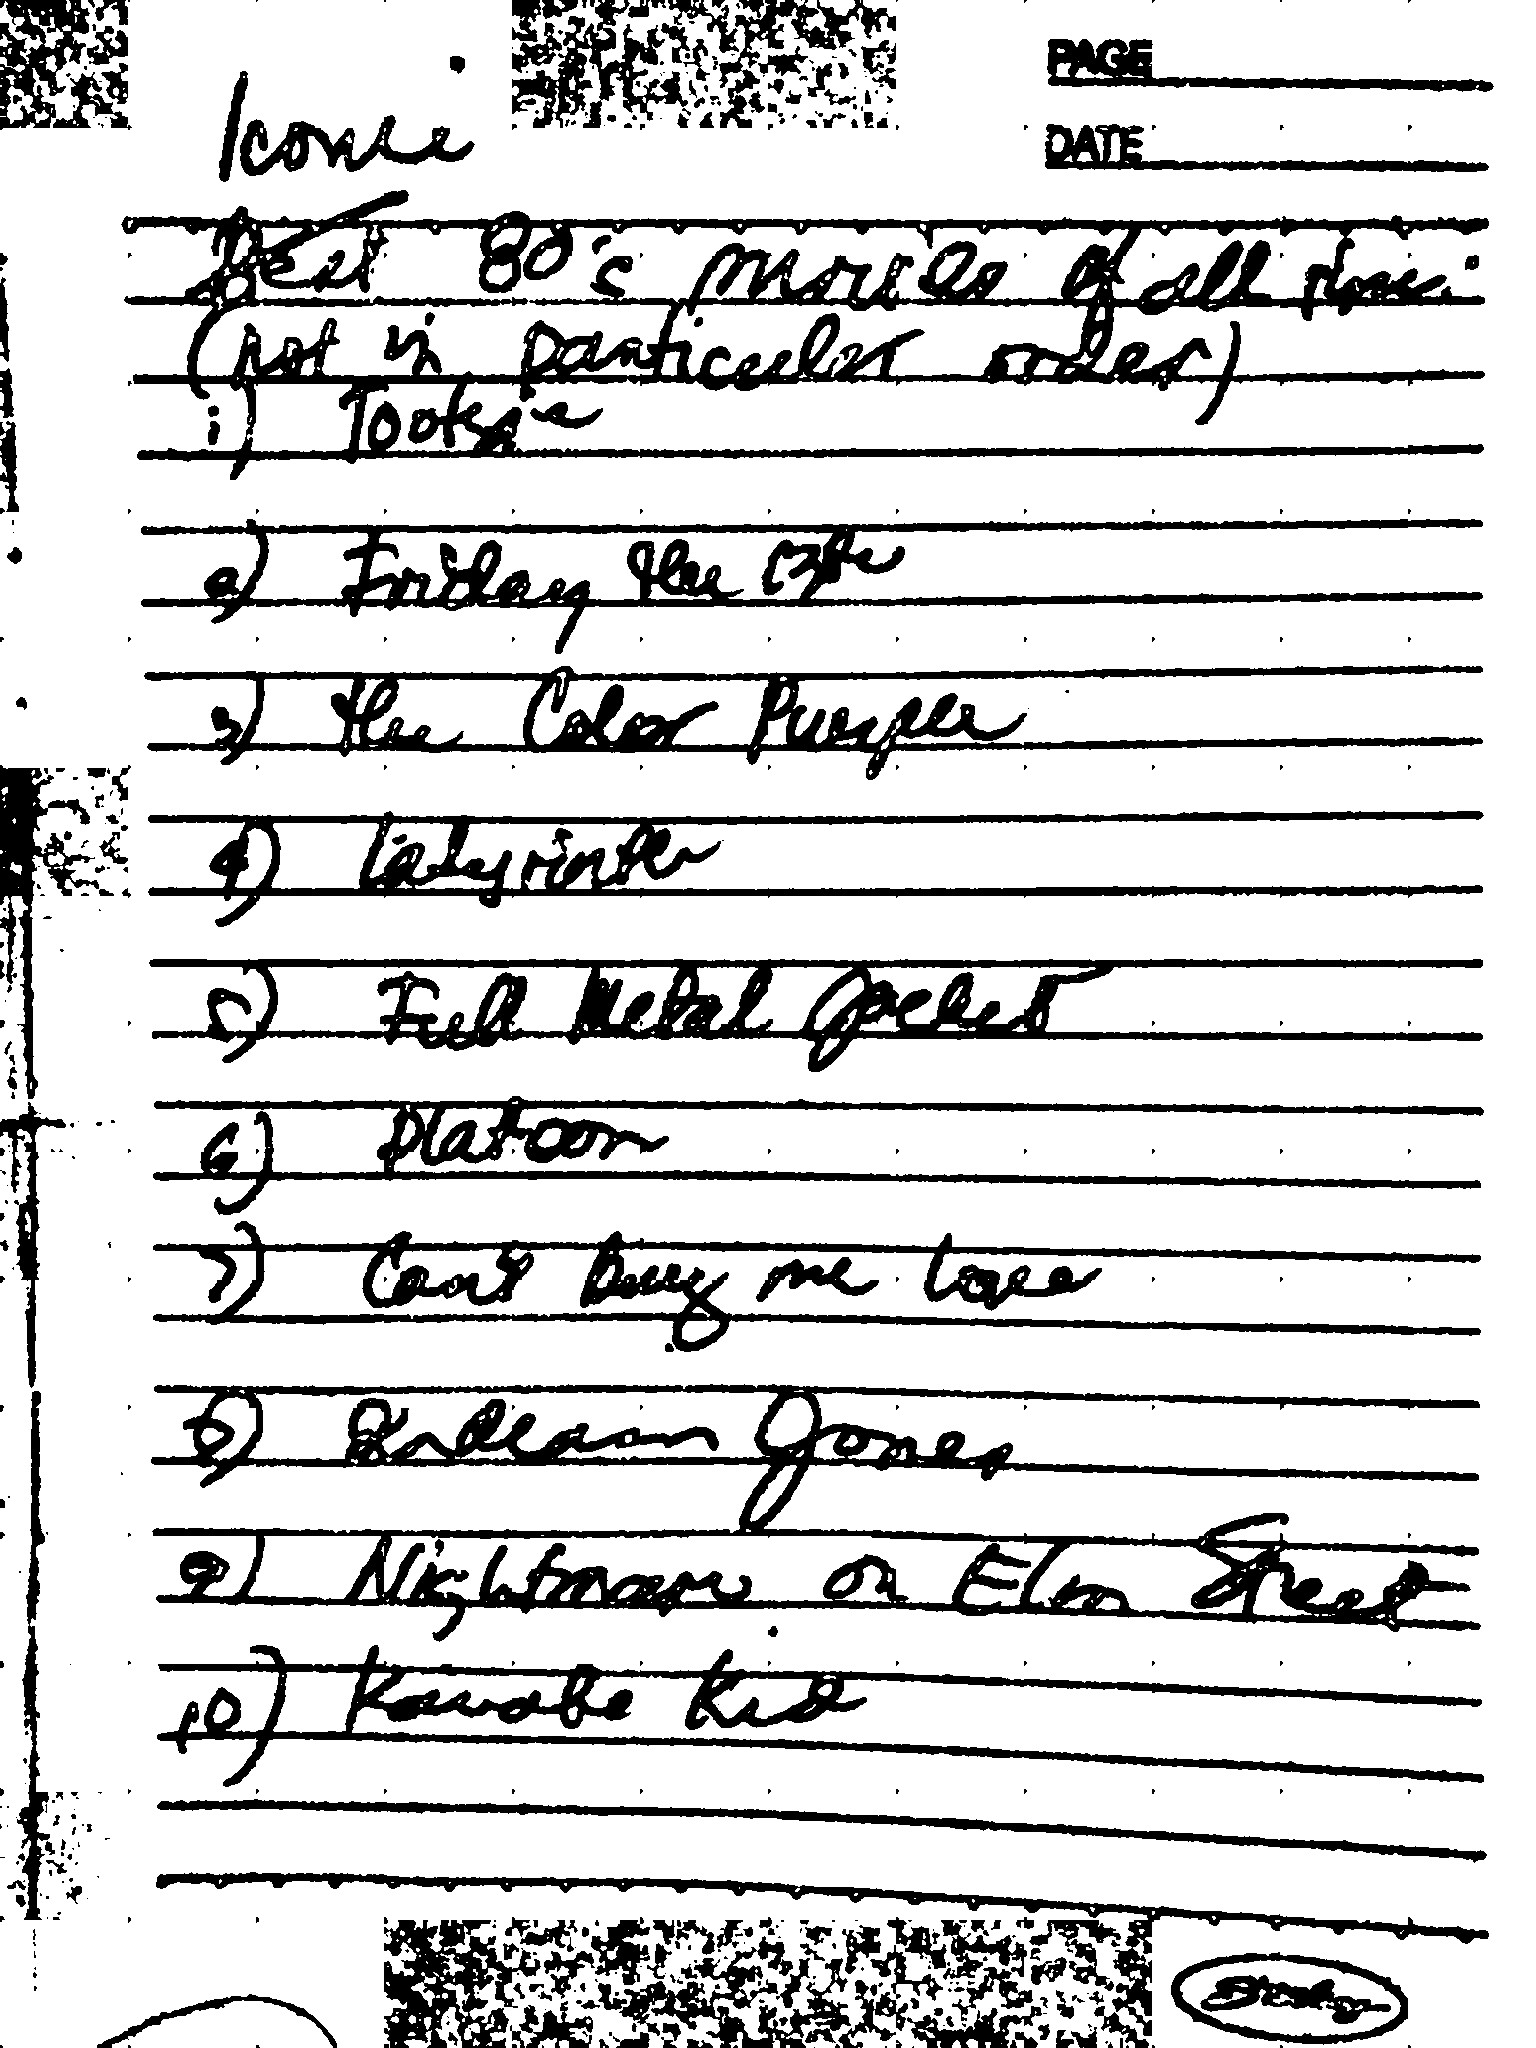 PAGE
DATE
Iconic
Best 80's movies of all time:
(not in particular order)
1) Tootsie
2) Friday the 13th
3) The Color Purple
4) Labyrinth
5) Full Metal Jacket
6) Platoon
7) Can't buy me love
8) Indiana Jones
9) Nightmare on Elm Street
10) Karate Kid